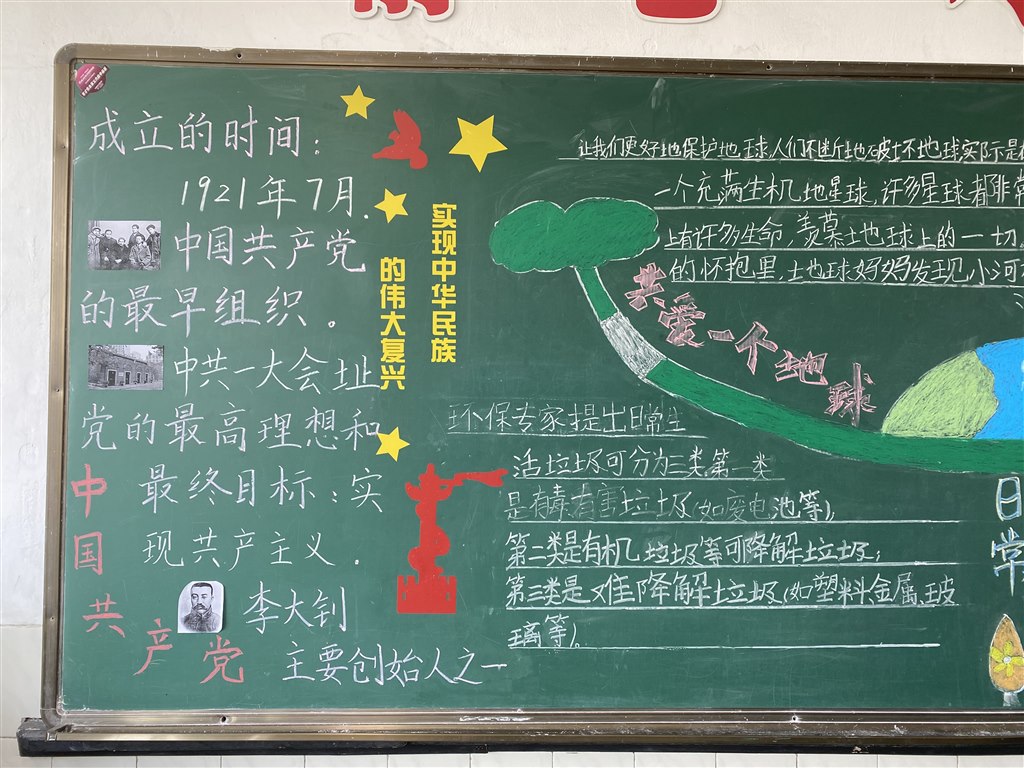 成立的时间：
1921年7月.
中国共产党
的最早组织。
中共一大会址
党的最高理想和
最终目标：实
现共产主义.
李大钊
主要创始人之一
中国共产党
实现中华民族
的伟大复兴
让我们更好地保护地球,人们不断地破坏地球,实际是在
一个充满生机地星球,许多星球都非常
上有许多生命,羡慕地球上的一切.
的怀抱里,地球妈妈发现,小河
共爱一个地球
环保专家提出日常生
活垃圾可分为三类.第一类
是有毒有害垃圾(如废电池等),
第二类是有机垃圾等可降解垃圾;
第三类是难降解垃圾,(如塑料金属、玻
璃等)。
日常